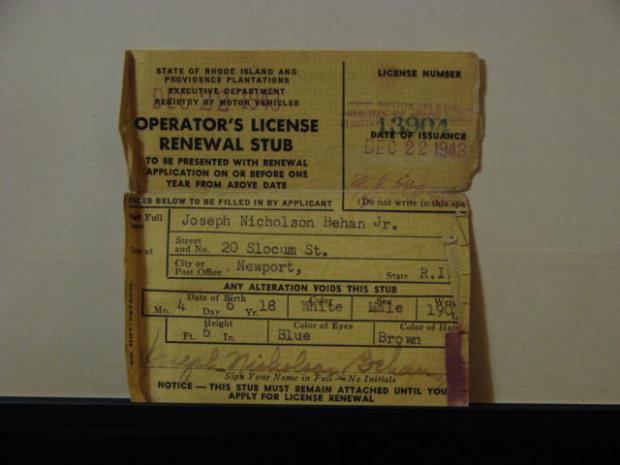 STATE OF RHODE ISLAND AND
PROVIDENCE PLANTATIONS
EXECUTIVE DEPARTMENT
REGISTRY OF MOTOR VEHICLES
DEC 22 1943
OPERATOR'S LICENSE
RENEWAL STUB
TO BE PRESENTED WITH RENEWAL
APPLICATION ON OR BEFORE ONE
YEAR FROM ABOVE DATE
LICENSE NUMBER
RHODE ISLAND
13904
DATE OF ISSUANCE
DEC 22 1943
(Do not write in this spa
BELOW TO BE FILLED IN BY APPLICANT
Full Joseph Nicholson Behan Jr.
Street
and No. 20 Slocum St.
City or
Post Office Newport, State R.I.
ANY ALTERATION VOIDS THIS STUB
Date of Birth Color Sex
Mo. 4 Day 6 Yr. 18 White Male 190
Height Color of Eyes Color of Hair
Ft. 6 In. Blue Brown
Joseph Nicholson Behan,
Sign Your Name in Full — No Initials
NOTICE — THIS STUB MUST REMAIN ATTACHED UNTIL YOU
APPLY FOR LICENSE RENEWAL